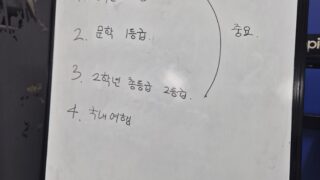 2. 문학 1등급.
중요.
3. 2학년 총등급 2등급.
4. 국내여행